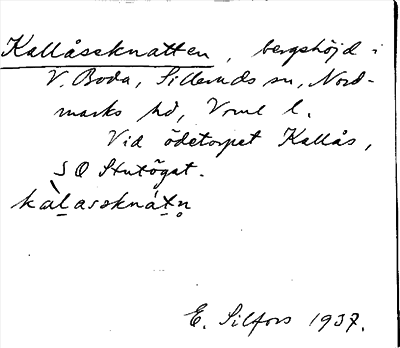 Kallåseknatten, bergshöjd i
V. Boda, Silleruds sn, Nord-
marks hd, Vrml l.
Vid ödetorpet Kallås,
SO Stutögat.
kàl̲asekná̲tn̥
E. Silfors 1937.